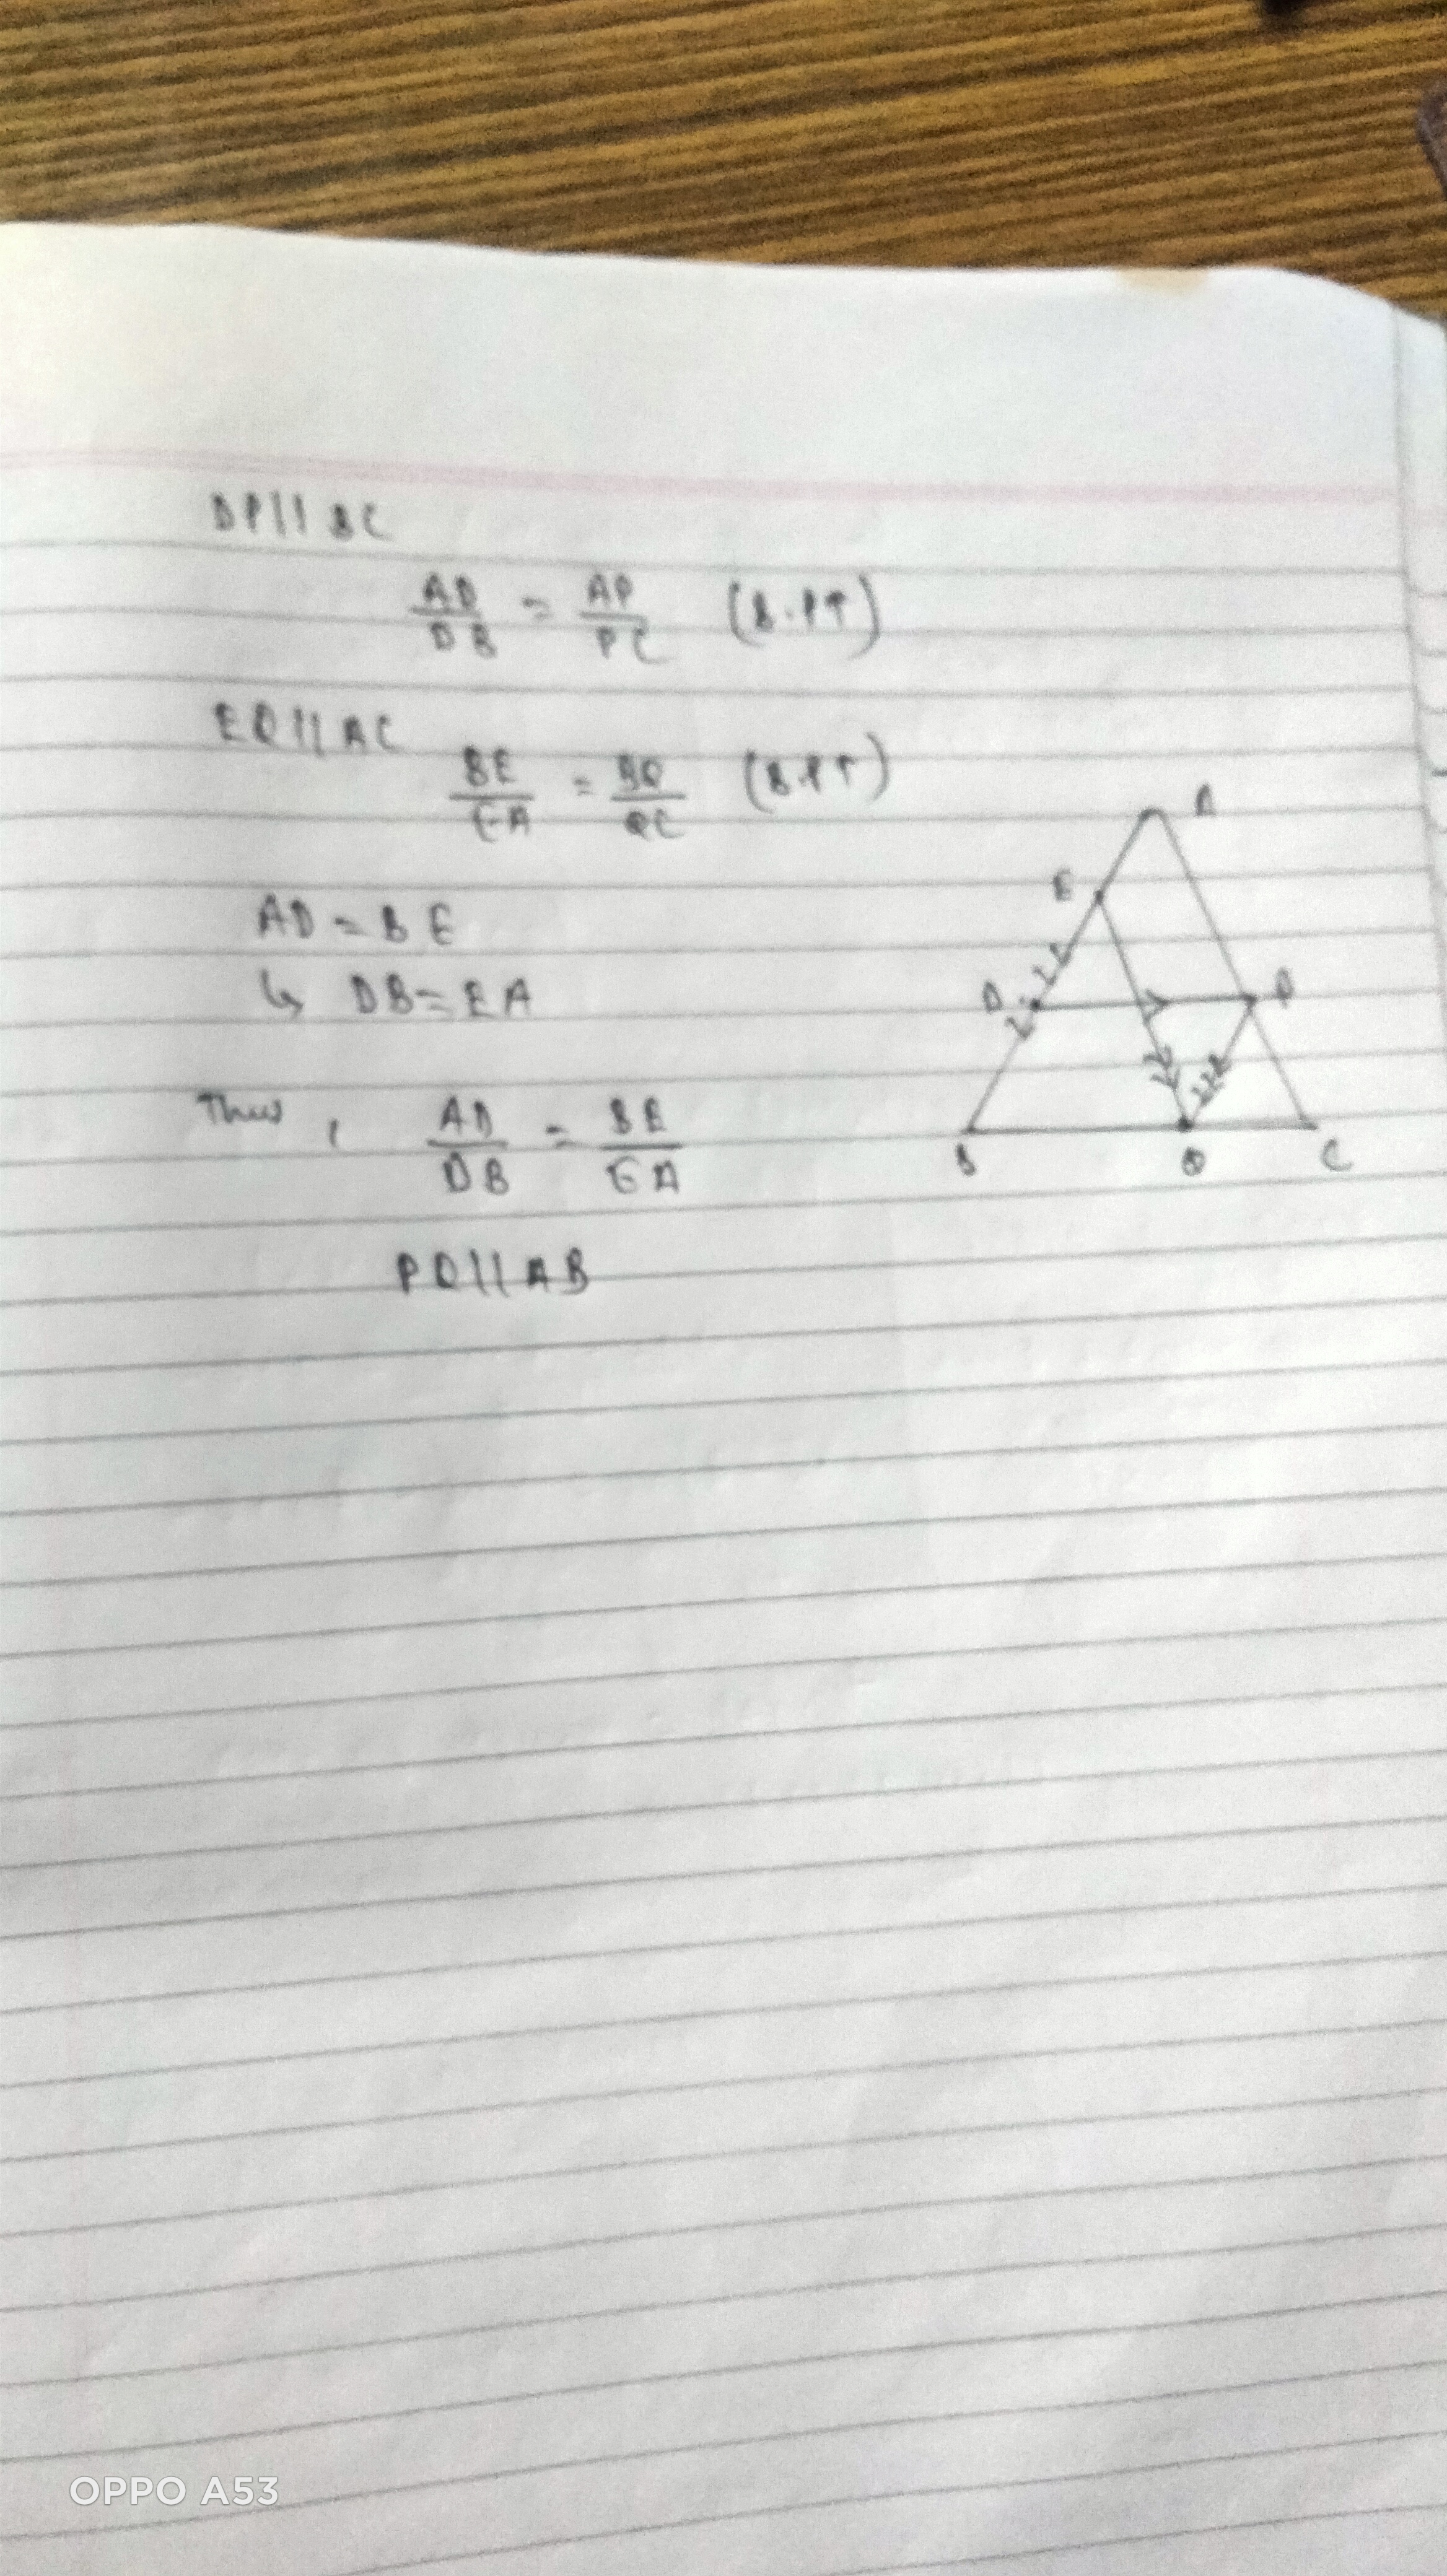 DP || BC
AD/DB = AP/PC (B.PT)
EQ || AC
BE/EA = BQ/QC (B.PT)
AD = BE
↳ DB = EA
Thus, AD/DB = BE/EA
PQ || AB
A
E
D
P
B
Q
C
OPPO A53